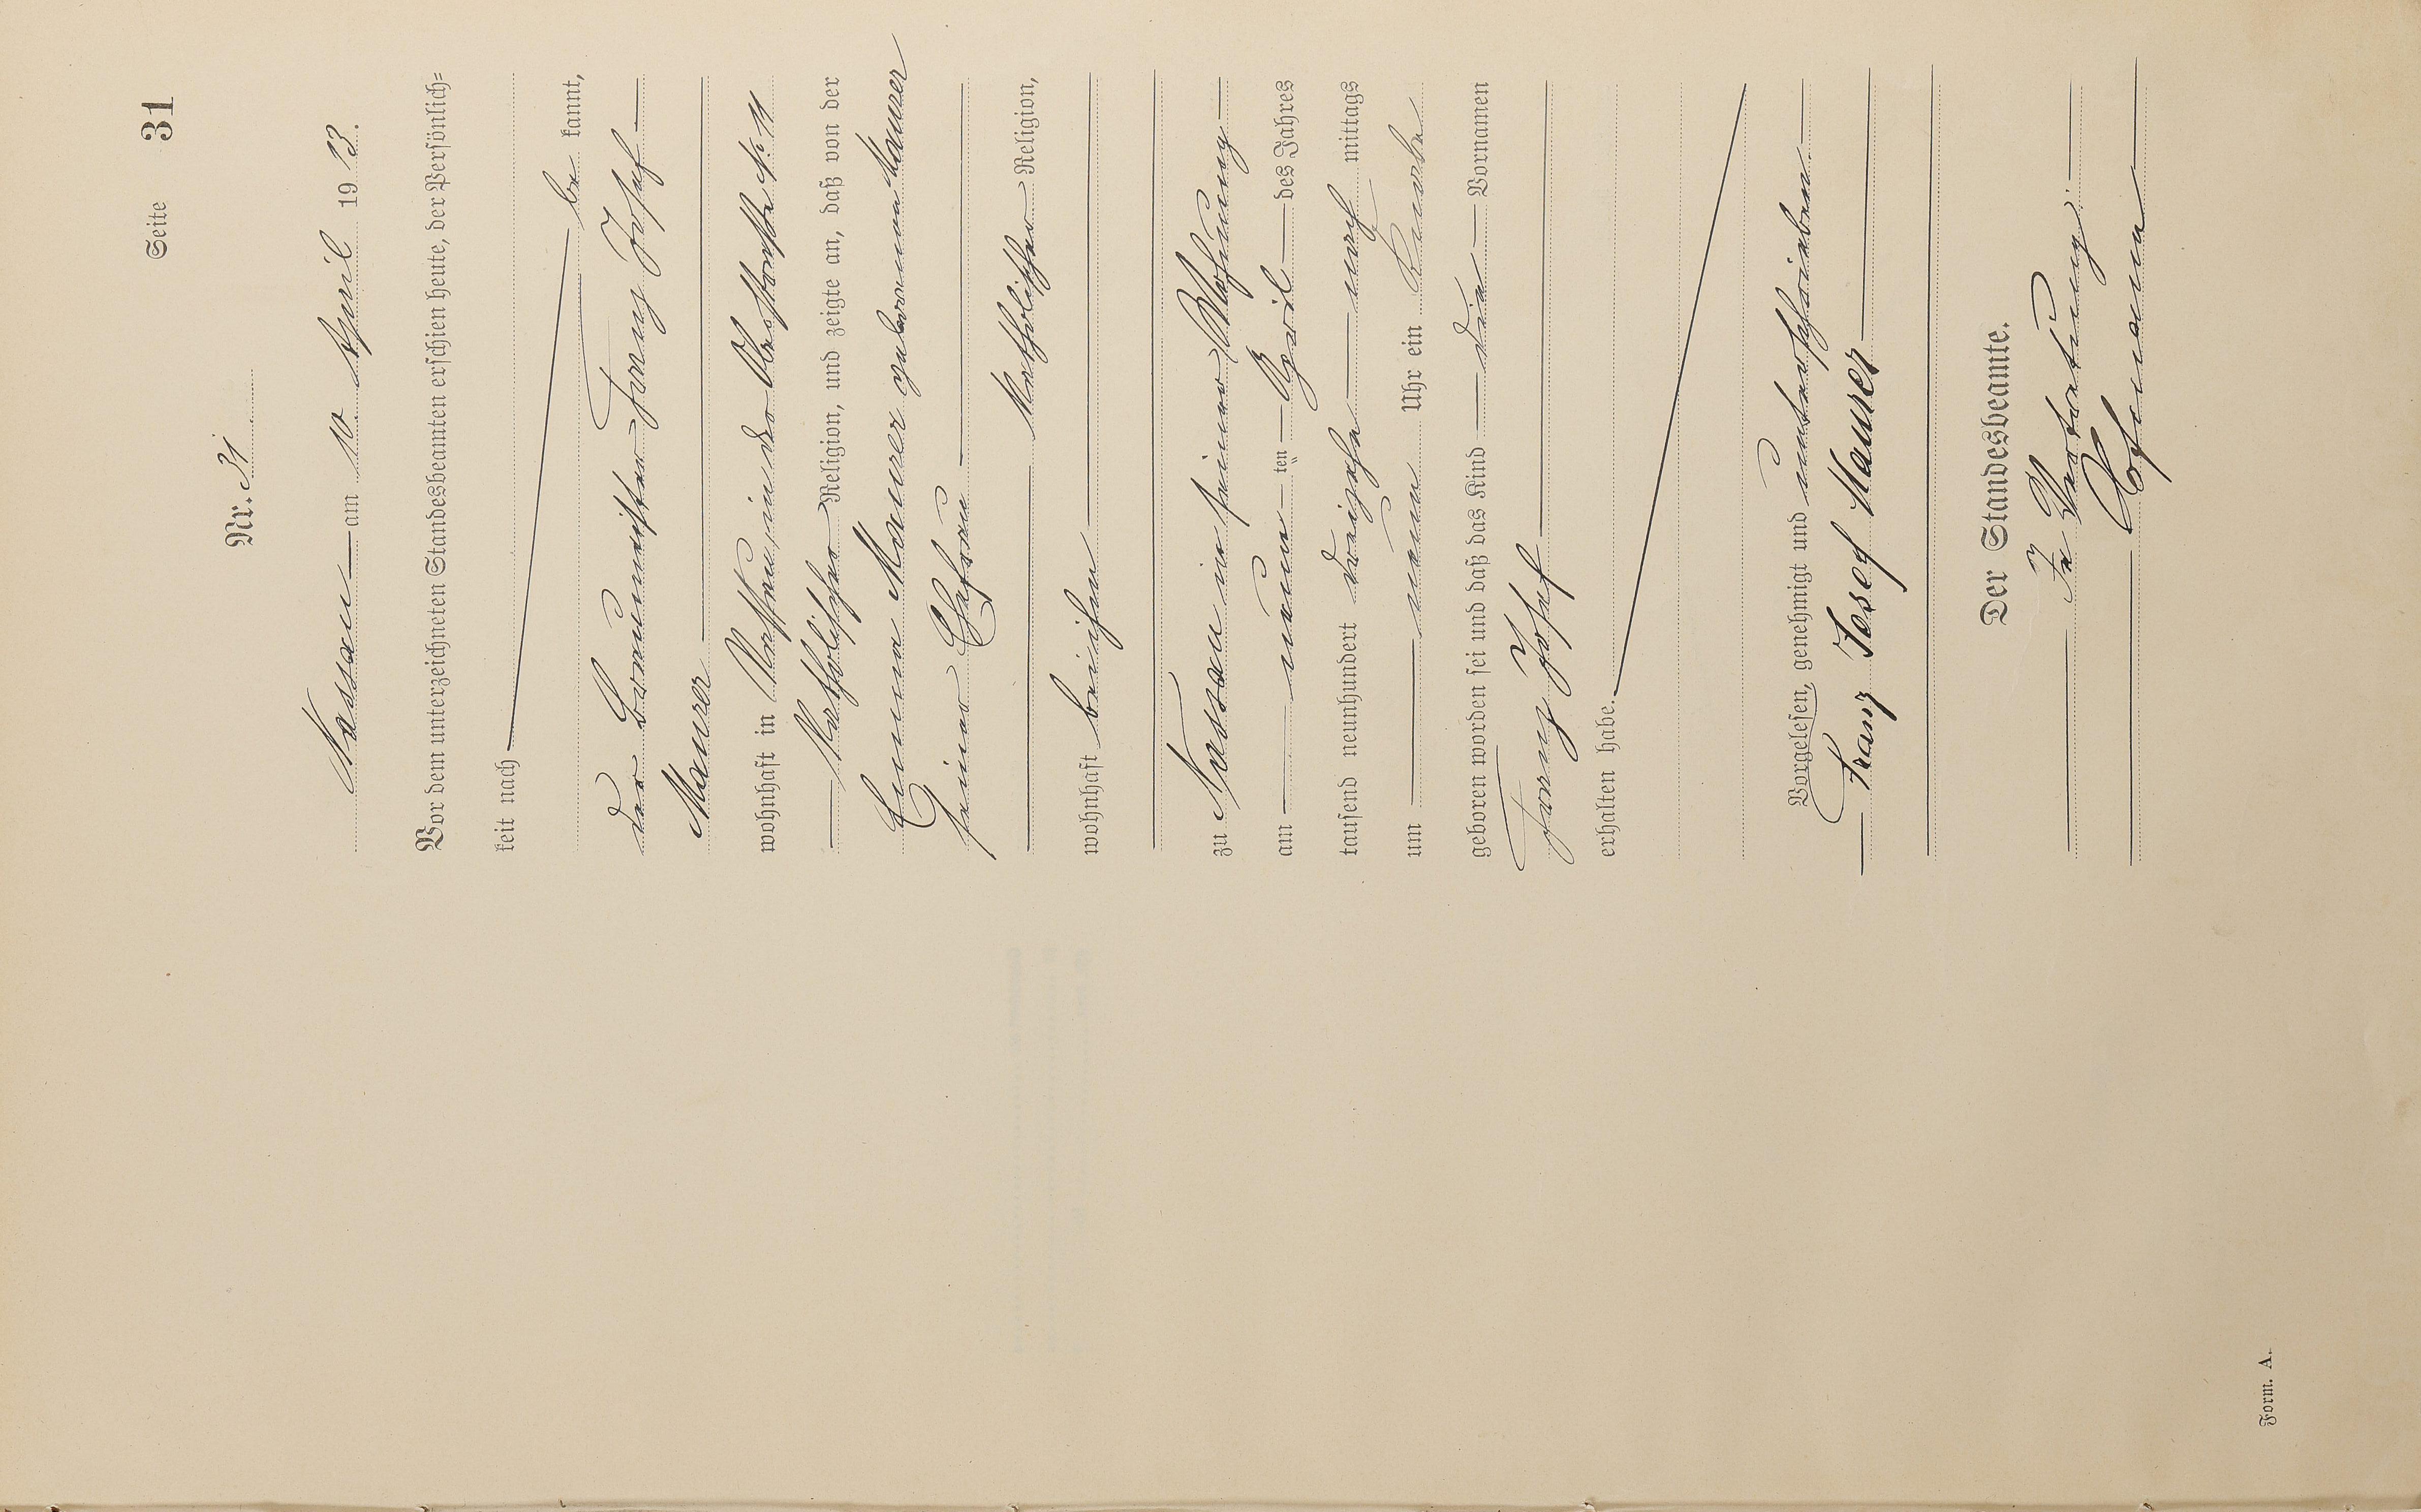 Seite 31
Nr. 31
Nassau am 10. April 1913.
Vor dem unterzeichneten Standesbeamten erschien heute, der Persönlich-
keit nach
be kannt,
der Braumeister Franz Josef
Maurer
wohnhaft in Nassau, in der
katholischer Religion, und zeigte an, daß von der
Emma Maurer geborenen Maurer
seiner Ehefrau
katholischer Religion,
wohnhaft bei ihm
zu Nassau in seiner Wohnung
am neun ten April des Jahres
tausend neunhundert dreizehn nach mittags
um neun Uhr ein Knabe
geboren worden sei und daß das Kind die Vornamen
Franz Josef
erhalten habe.
Vorgelesen, genehmigt und unterschrieben.
Franz Josef Maurer
Der Standesbeamte.
In Vertretung:
Form. A.